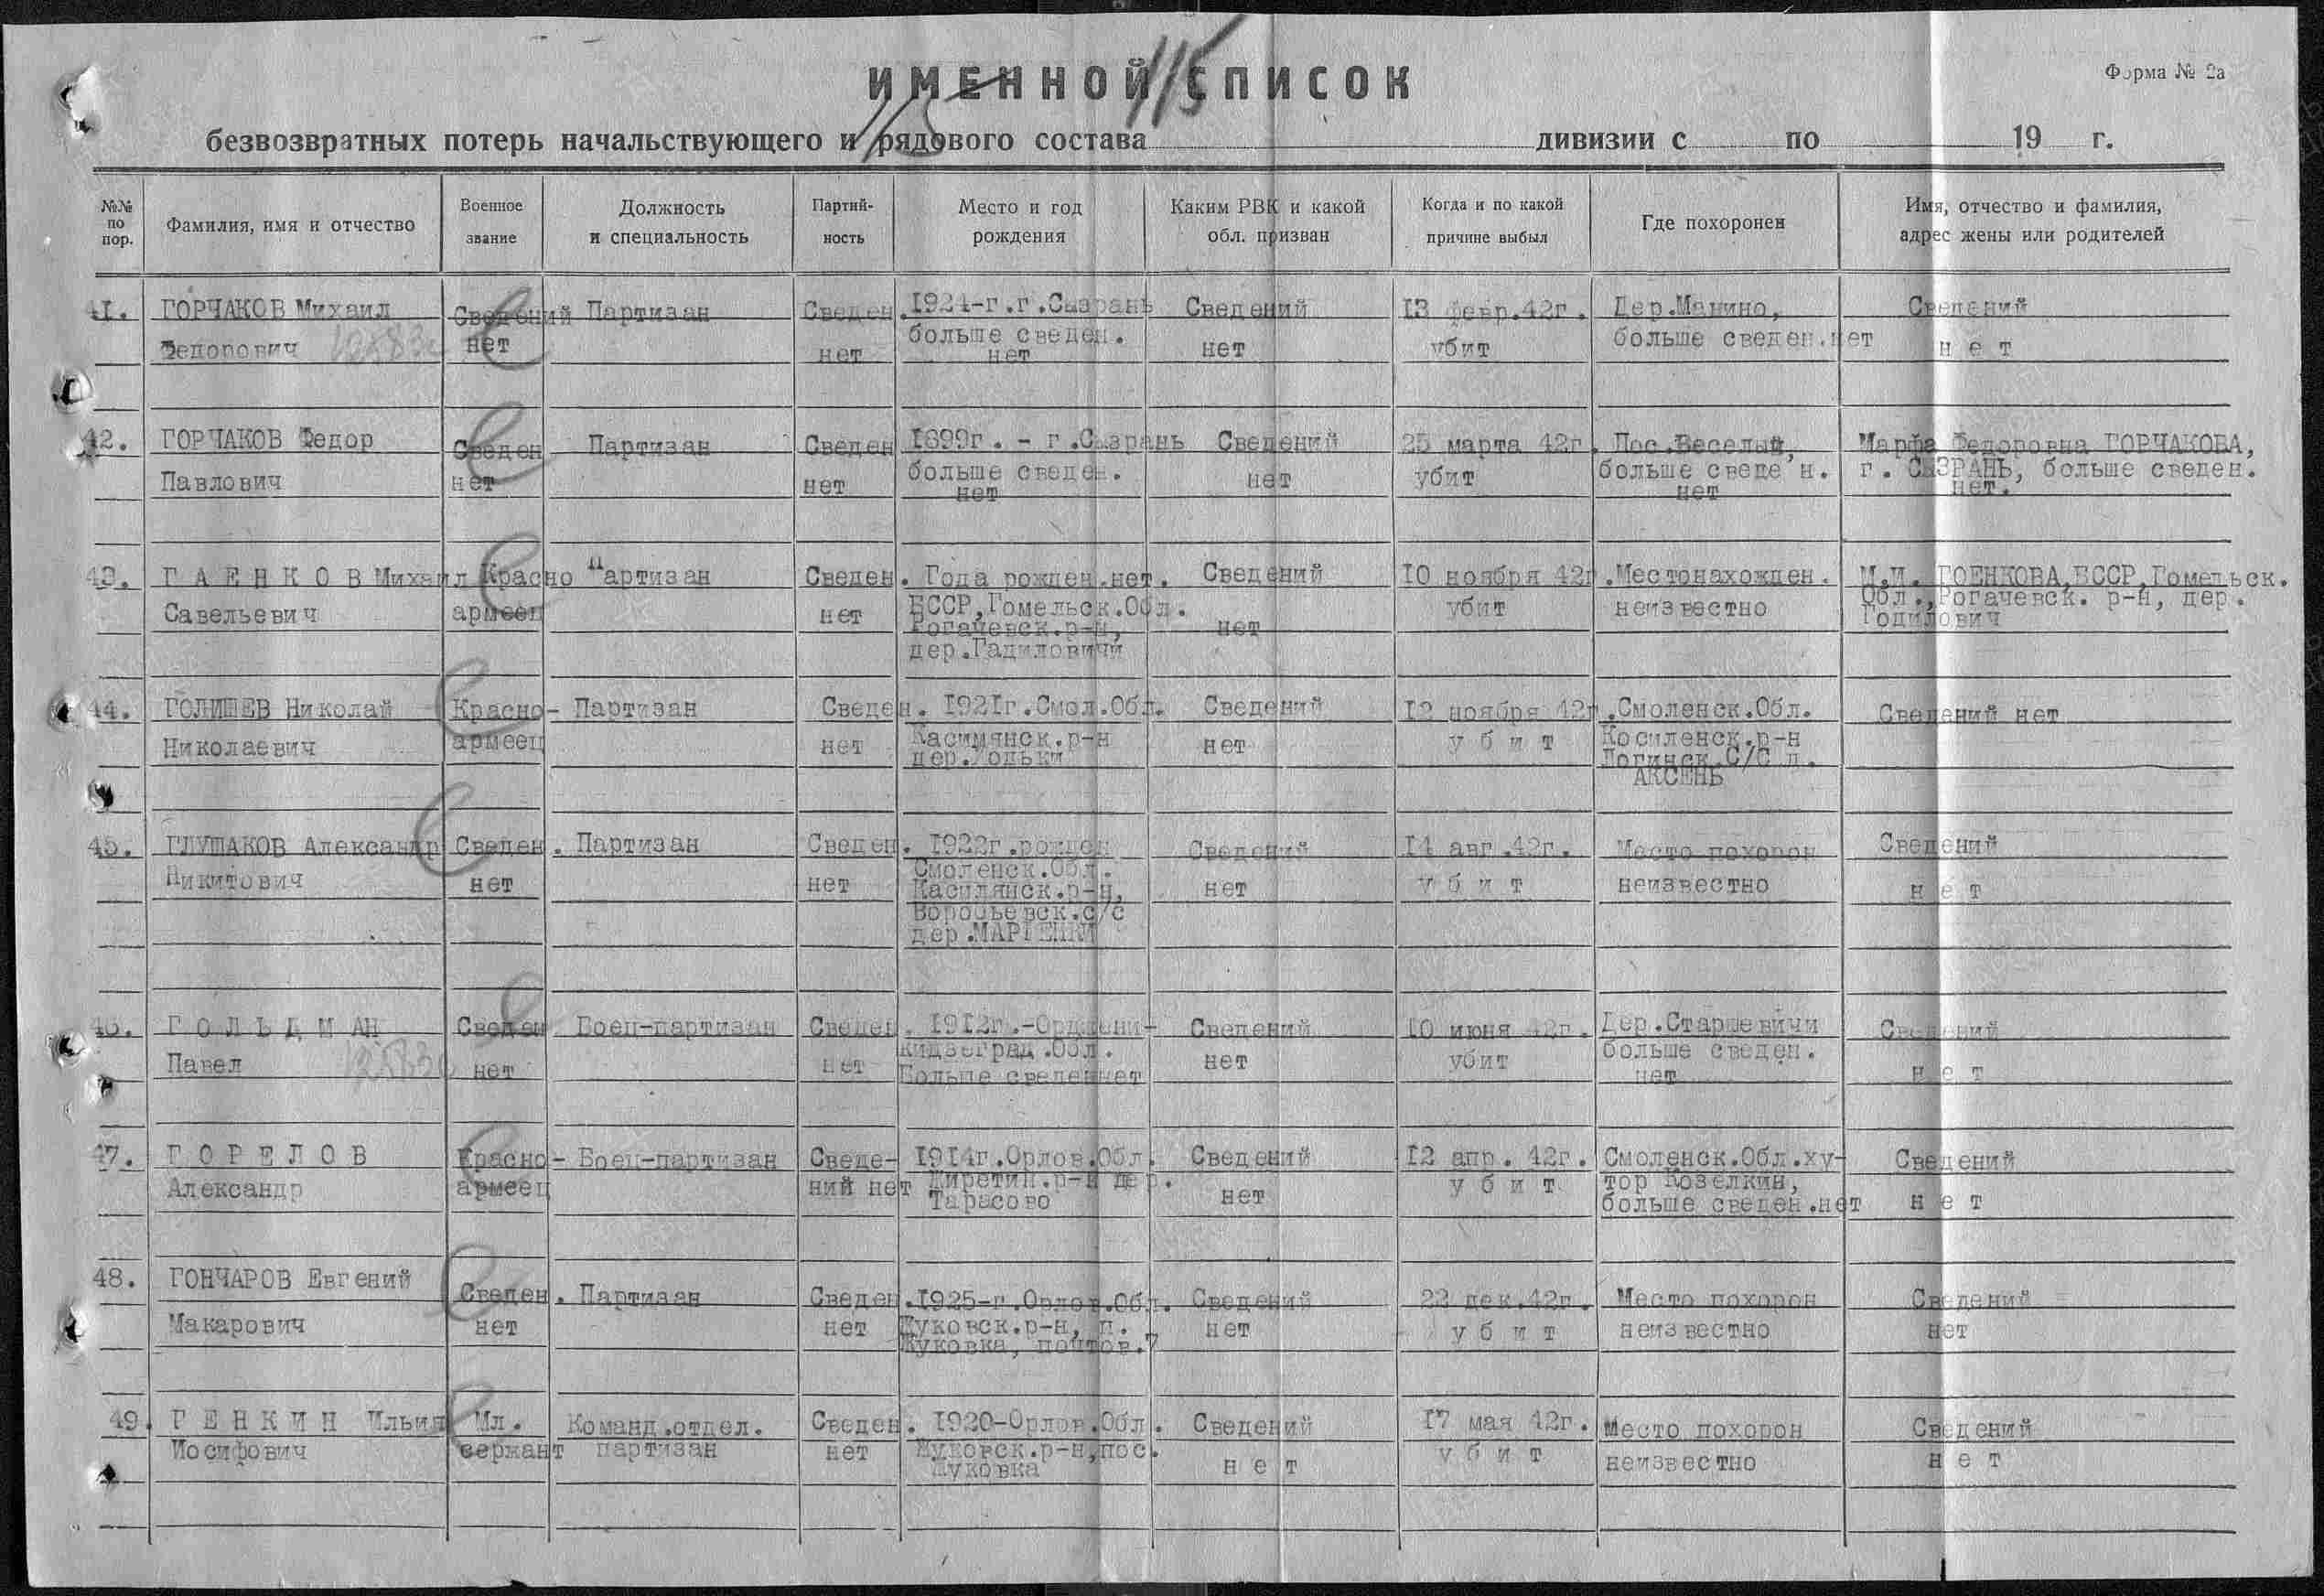 ИМЕННОЙ СПИСОК
115
Форма № 2а
безвозвратных потерь начальствующего и рядового состава дивизии с по 19 г.
№№ по пор.
Фамилия, имя и отчество
Военное звание
Должность и специальность
Партий-ность
Место и год рождения
Каким РВК и какой обл. призван
Когда и по какой причине выбыл
Где похоронен
Имя, отчество и фамилия, адрес жены или родителей
41. ГОРЧАКОВ Михаил Сведений Партизан Сведен. 1924-г.г.Сызрань Сведений 13 февр.42г. Дер.Манино, Сведений
Федорович нет нет больше сведен. нет нет убит больше сведен.нет н е т
42. ГОРЧАКОВ Федор Сведен Партизан Сведен 1899г. - г.Сызрань Сведений 25 марта 42г. Пос.Веселый, Марфа Федоровна ГОРЧАКОВА,
Павлович нет нет больше сведен. нет нет убит больше сведе н. нет г. СЫЗРАНЬ, больше сведен. нет.
43. Г А Е Н К О В Михаил Красно Партизан Сведен. Года рожден.нет. Сведений 10 ноября 42г. Местонахожден. М.И. ГОЕНКОВА,БССР,Гомельск.
Савельевич армеец нет БССР,Гомельск.Обл. нет убит неизвестно Обл.,Рогачевск. р-н, дер.
Рогачевск.р-н, Годилович
дер.Гадиловичи
44. ГОЛИШЕВ Николай Красно- Партизан Сведен. 1921г.Смол.Обл. Сведений 12 ноября 42г. Смоленск.Обл. Сведений нет
Николаевич армеец нет Касимянск.р-н нет у б и т Косиленск.р-н
дер. Логинск.С/С д.
АКСЕНЬ
45. ГЛУШАКОВ Александр Сведен. Партизан Сведен. 1922г.рожден Сведений 14 авг.42г. Место похорон Сведений
Никитович нет нет Смоленск.Обл. нет у б и т неизвестно н е т
Касилянск.р-н,
Воробьевск.с/с
дер.
46. Г О Л Ь Д М АН Сведен Боец-партизан Сведен. 1912г.-Орджени- Сведений 10 июня 42г. Дер.Старшевичи Сведений
Павел 12883с нет нет кидзеград.Обл. нет убит больше сведен. н е т
Больше сведен нет нет
47. Г О Р Е Л О В Красно- Боец-партизан Сведе- 1914г.Орлов.Обл. Сведений 12 апр. 42г. Смоленск.Обл.ху- Сведений
Александр армеец ний нет Диретин.р-н дер. нет у б и т тор Козелкин, н е т
Тарасово больше сведен.нет
48. ГОНЧАРОВ Евгений Сведен. Партизан Сведен. 1925-г.Орлов.Обл. Сведений 22 дек.42г. Место похорон Сведений
Макарович нет нет Жуковск.р-н, п. нет у б и т неизвестно нет
Жуковка, почтов.7
49. Г Е Н К И Н Илья Мл. Команд.отдел. Сведен. 1920-Орлов.Обл. Сведений 17 мая 42г. Место похорон Сведений
Иосифович сержант партизан нет Жуковск.р-н,пос. н е т у б и т неизвестно н е т
Жуковка